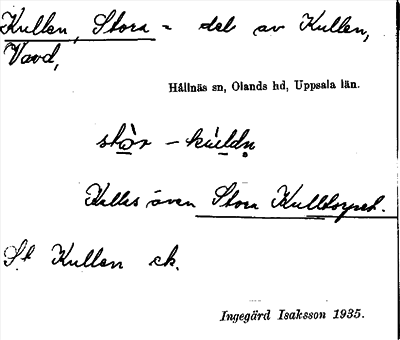 Kullen, Stora = del av Kullen,
Vavd,
Hållnäs sn, Olands hd, Uppsala län.
Kallas även Stora Kulltorpet.
St Kullen ek.
Ingegärd Isaksson 1935.